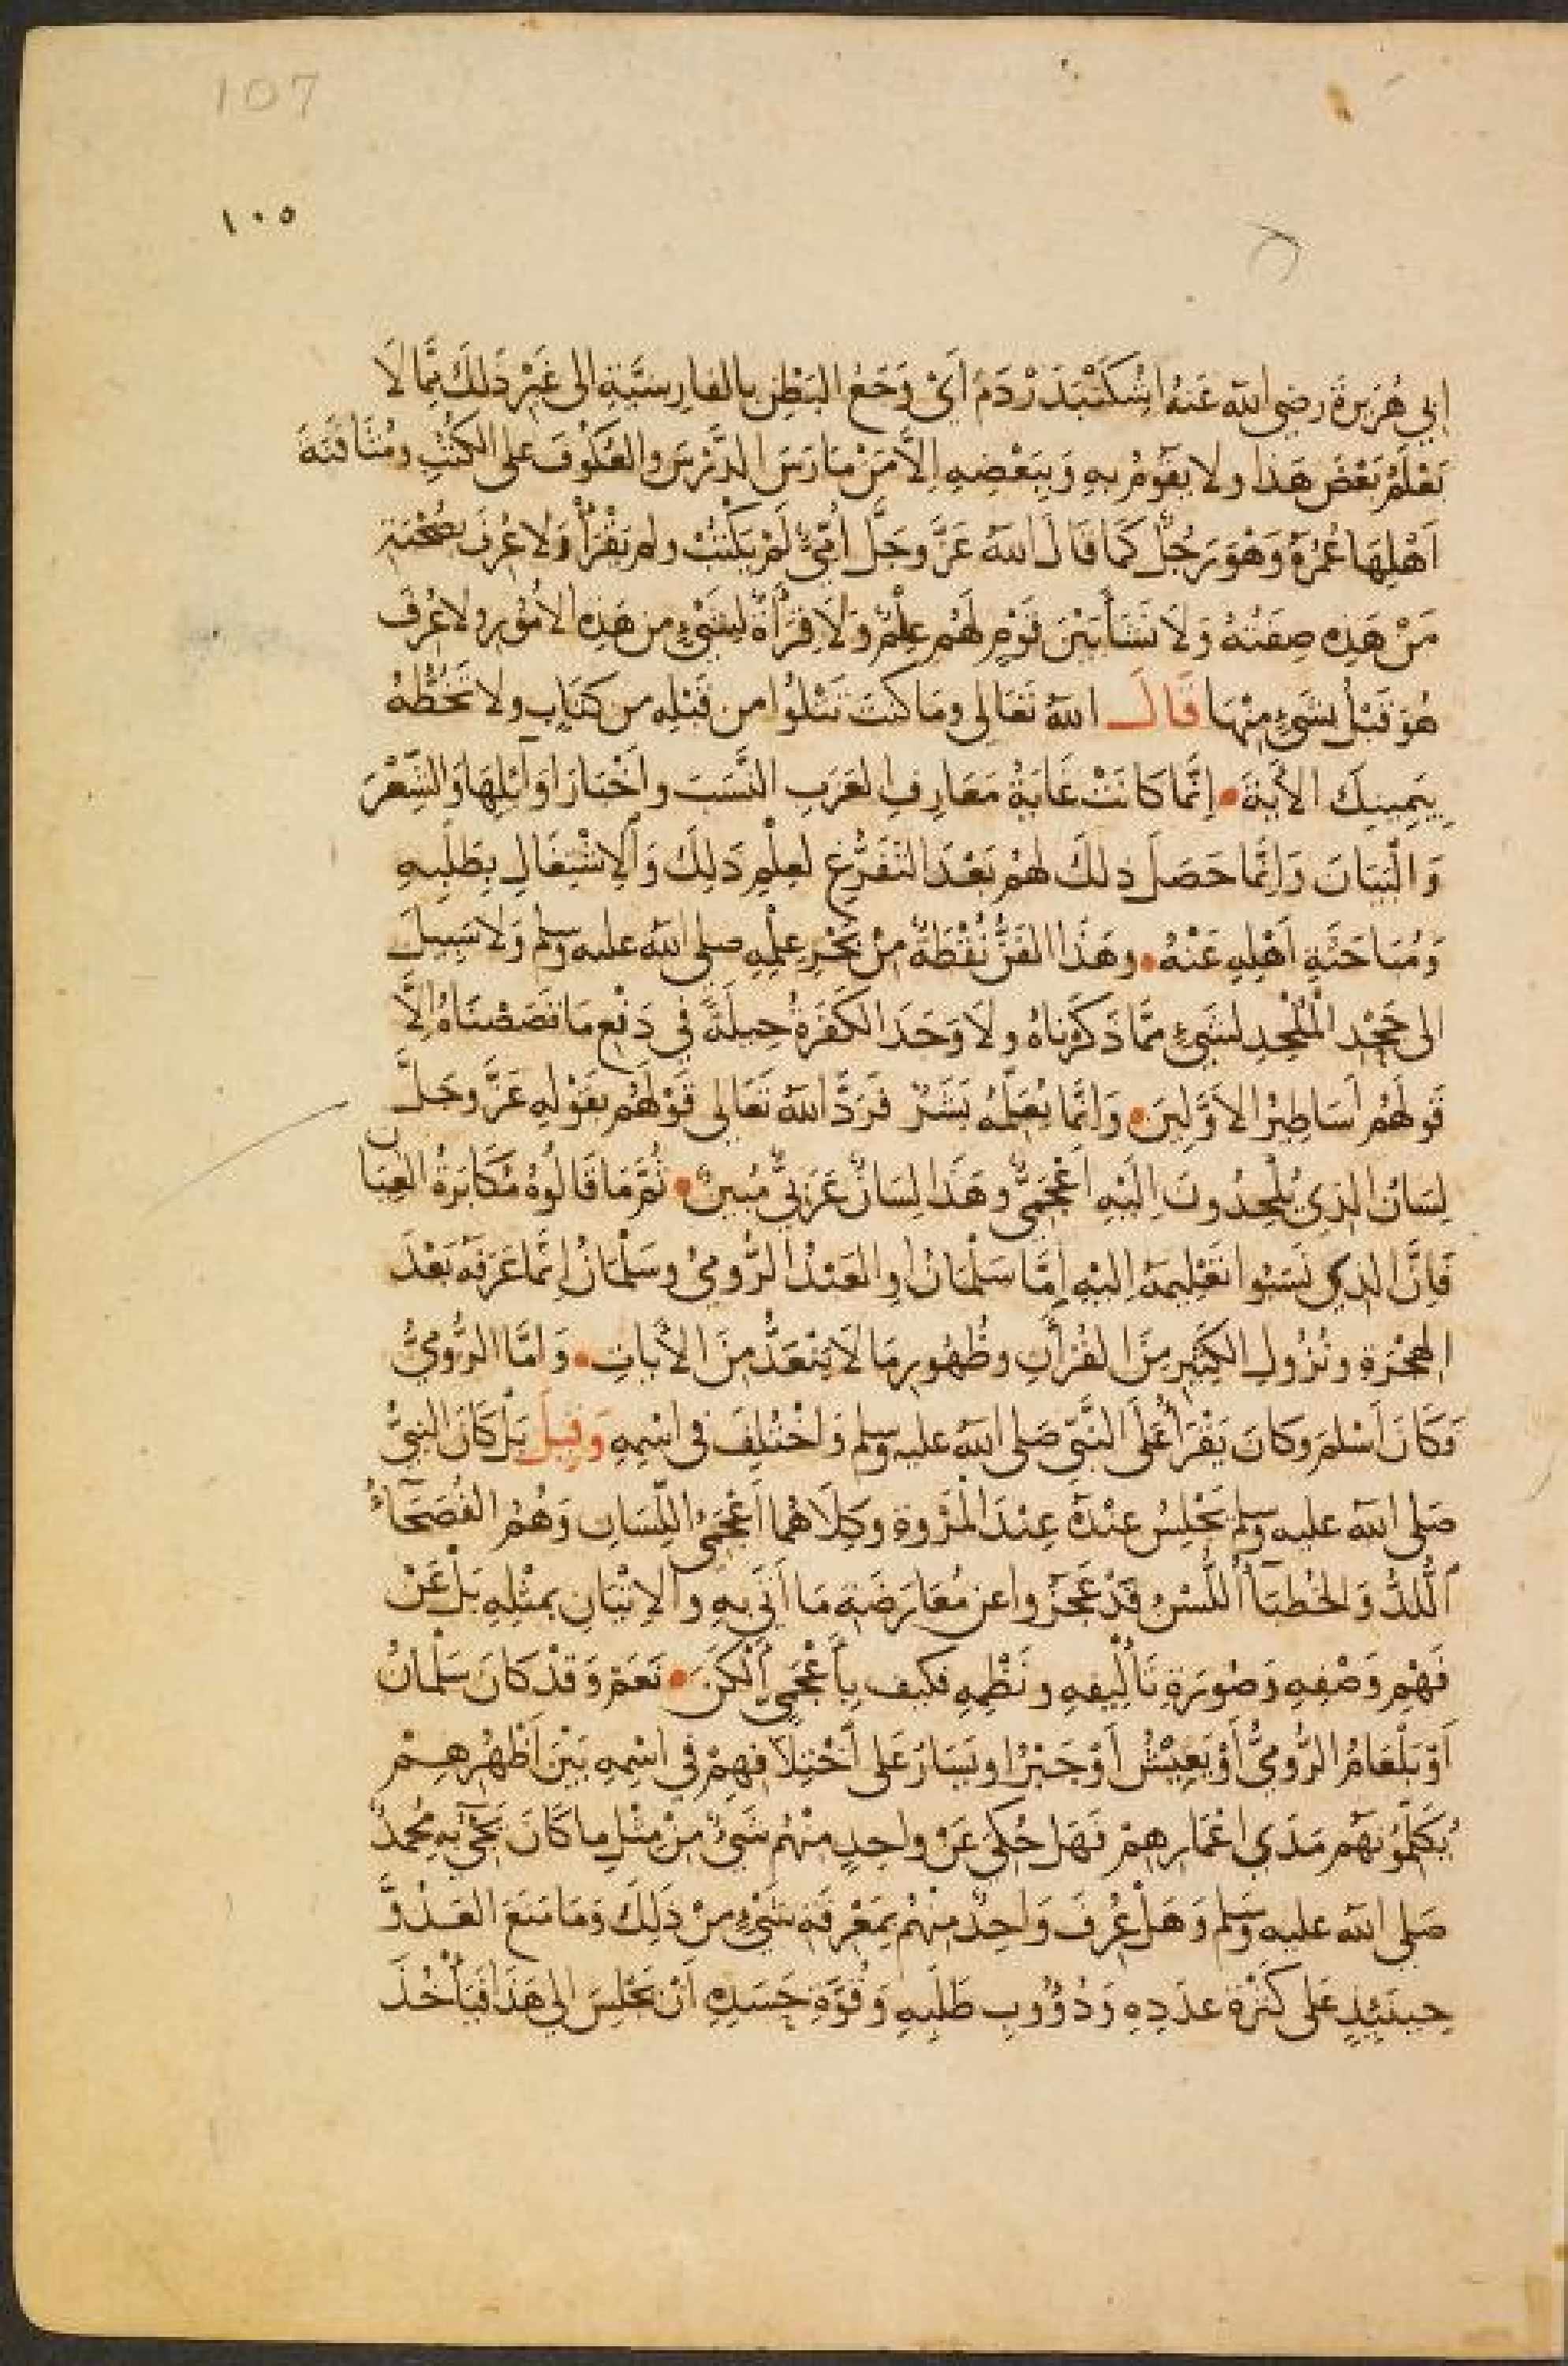 107
١٠٥
ابي هُرَيرة رضي الله عَنهُ اشْكَنْبَدَرْدَمْ اَيْ وَجَعُ البَطْنِ بالفارِسيَّةِ الى غَيْرِ ذَلكَ مِمَّا لَا
يَعْلَمُ بَعْضَ هَذا ولا يقُومُ بهِ وَبِبَعْضِهِ اِلاَّ مَنْ مَارَسَ الدَّرْسَ والعُكُوفَ على الكُتُبِ ومُثَافَنَةَ
اَهْلِهَا عُمُرَهُ وَهْوَ رَجُلٌ كَمَا قَالَ اللهُ عَزَّ وجَلَّ اُمِّيٌّ لَمْ يَكْتُبْ ولم يَقْرَأْ وَلا عُرِفَ بصُحْبَةِ
مَنْ هَذِهِ صِفَتُهُ وَلَا نَشَأَ بَيْنَ قَوْمٍ لَهُم عِلْمٌ وَلَا قِرَأَةٌ لِشَيْءٍ من هَذِهِ الأمُورِ ولا عُرِفَ
هُوَ قَبْلُ بشَيْءٍ مِنْهَا قَالَ اللهُ تَعَالى ومَا كنتَ تَتْلُوا من قَبْلِهِ من كِتَابٍ ولا تَخُطُّهُ
بِيَمِينِكَ الأيةَ • اِنَّمَا كَانَتْ غَايَةُ مَعَارِفِ العَرَبِ النَّسَبَ واَخْبَارَ اَوَائِلِهَا وَالشِّعْرَ
وَالبَيَانَ وَاِنَّما حَصَلَ ذلكَ لهُمْ بَعْدَ التَّفَرُّغِ لعِلْمِ ذَلِكَ وَالاِشْتِغَالِ بِطَلَبِهِ
وَمُبَاحَثَةِ اَهْلِهِ عَنْهُ • وهَذَا الفَنُّ نُقْطَةٌ مِنْ بَحْرِ عِلْمِهِ صلى الله عليه وسلم وَلا سَبِيلَ
الى جَحْدِ المُلْحِدِ لشَيْءٍ ممَّا ذَكَرْنَاهُ ولَا وَجَدَ الكَفَرَةُ حِيلَةً في دَفْعِ مَا نَصَصْنَاهُ اِلَّا
قَولَهُمْ اَسَاطِيْرُ الاَوَّلِينَ • وَاِنَّمَا يُعَلِّمُهُ بَشَرٌ فَرَدَّ اللهُ تَعَالى قَوْلَهُم بقَوْلِهِ عَزَّ وجَلَّ
لِسَانُ الذِي يُلْحِدُونَ اِلَيْهِ اَعْجَمِيٌّ وهَذَا لِسَانٌ عَرَبيٌّ مُبينٌ • ثُمَّ مَا قَالُوهُ مُكَابَرَةُ العِيَانِ
فَاِنَّ الذِي نَسَبُوا تَعْلِيمَهُ اِليْهِ اِمَّا سَلْمَانُ اوِ العَبْدُ الرُّوميُّ وسَلْمَانُ اِنَّما عَرَفَهُ بَعْدَ
الهِجْرَةِ ونُزُولِ الكَثِيرِ مِنَ القُرْأنِ وظُهُورِ مَا لَا يَنْعَدُّ مِنَ الأيَاتِ • وَامَّا الرُّومِيُّ
فَكَانَ اَسْلمَ وكَانَ يَقْرَأُ عَلَى النَّبيِّ صَلى اللهُ عليهِ وسلم وَاخْتُلِفَ في اسْمِهِ وَقِيلَ بَلْ كَانَ النبيُّ
صَلى الله عليه وسلم يَجْلِسُ عِنْدَهُ عِنْدَ المَرْوةِ وكِلَاهُما اَعْجَمِيُّ اللِّسَانِ وَهُمُ الفُصَحَاءُ
اللُّدُّ وَالخُطَبَاءُ اللُّسْنُ قَدْ عَجَزُوا عن مُعَارَضَةِ مَا اَتَى بهِ والاِتْيَانِ بمثْلِهِ بَلْ عَنْ
فَهْمِ وَصْفِهِ وَصُورَةِ تَأْلِيفِهِ ونَظْمِهِ فكيف بأَعْجَمِيٍّ اَلْكَنَ • نَعَمْ وَقدْ كانَ سَلْمانُ
اَوْ بَلْعَامُ الرُّوميُّ أَوْ يَعِيْشُ أَوْ جَبْرٌ اويَسَارٌ عَلى اخْتِلَافِهِمْ في اسْمِهِ بَيْنَ اَظْهُرِهِمْ
يُكَلِّمُونَهُم مَدَى اعْمَارِهِمْ فَهَل حُكِيَ عَنْ واحِدٍ منْهُم شَيْءٌ مِنْ مثْلِ ما كَانَ يَجِيْءُ بهِ مُحمدٌ
صَلى الله عليه وسَلم وَهَلْ عُرِفَ وَاحِدٌ مِنْهُمْ بمَعْرِفَةِ شَيْءٍ مِنْ ذَلِكَ وَمَا مَنَعَ العَدُوَّ
حِينَئِذٍ عَلى كَثرَةِ عدَدِهِ وَدُؤُوبِ طَلَبِهِ وَقُوَّةِ حَسَدِهِ اَنْ يَجْلِسَ الى هَذَا فَيَأْخُذَ